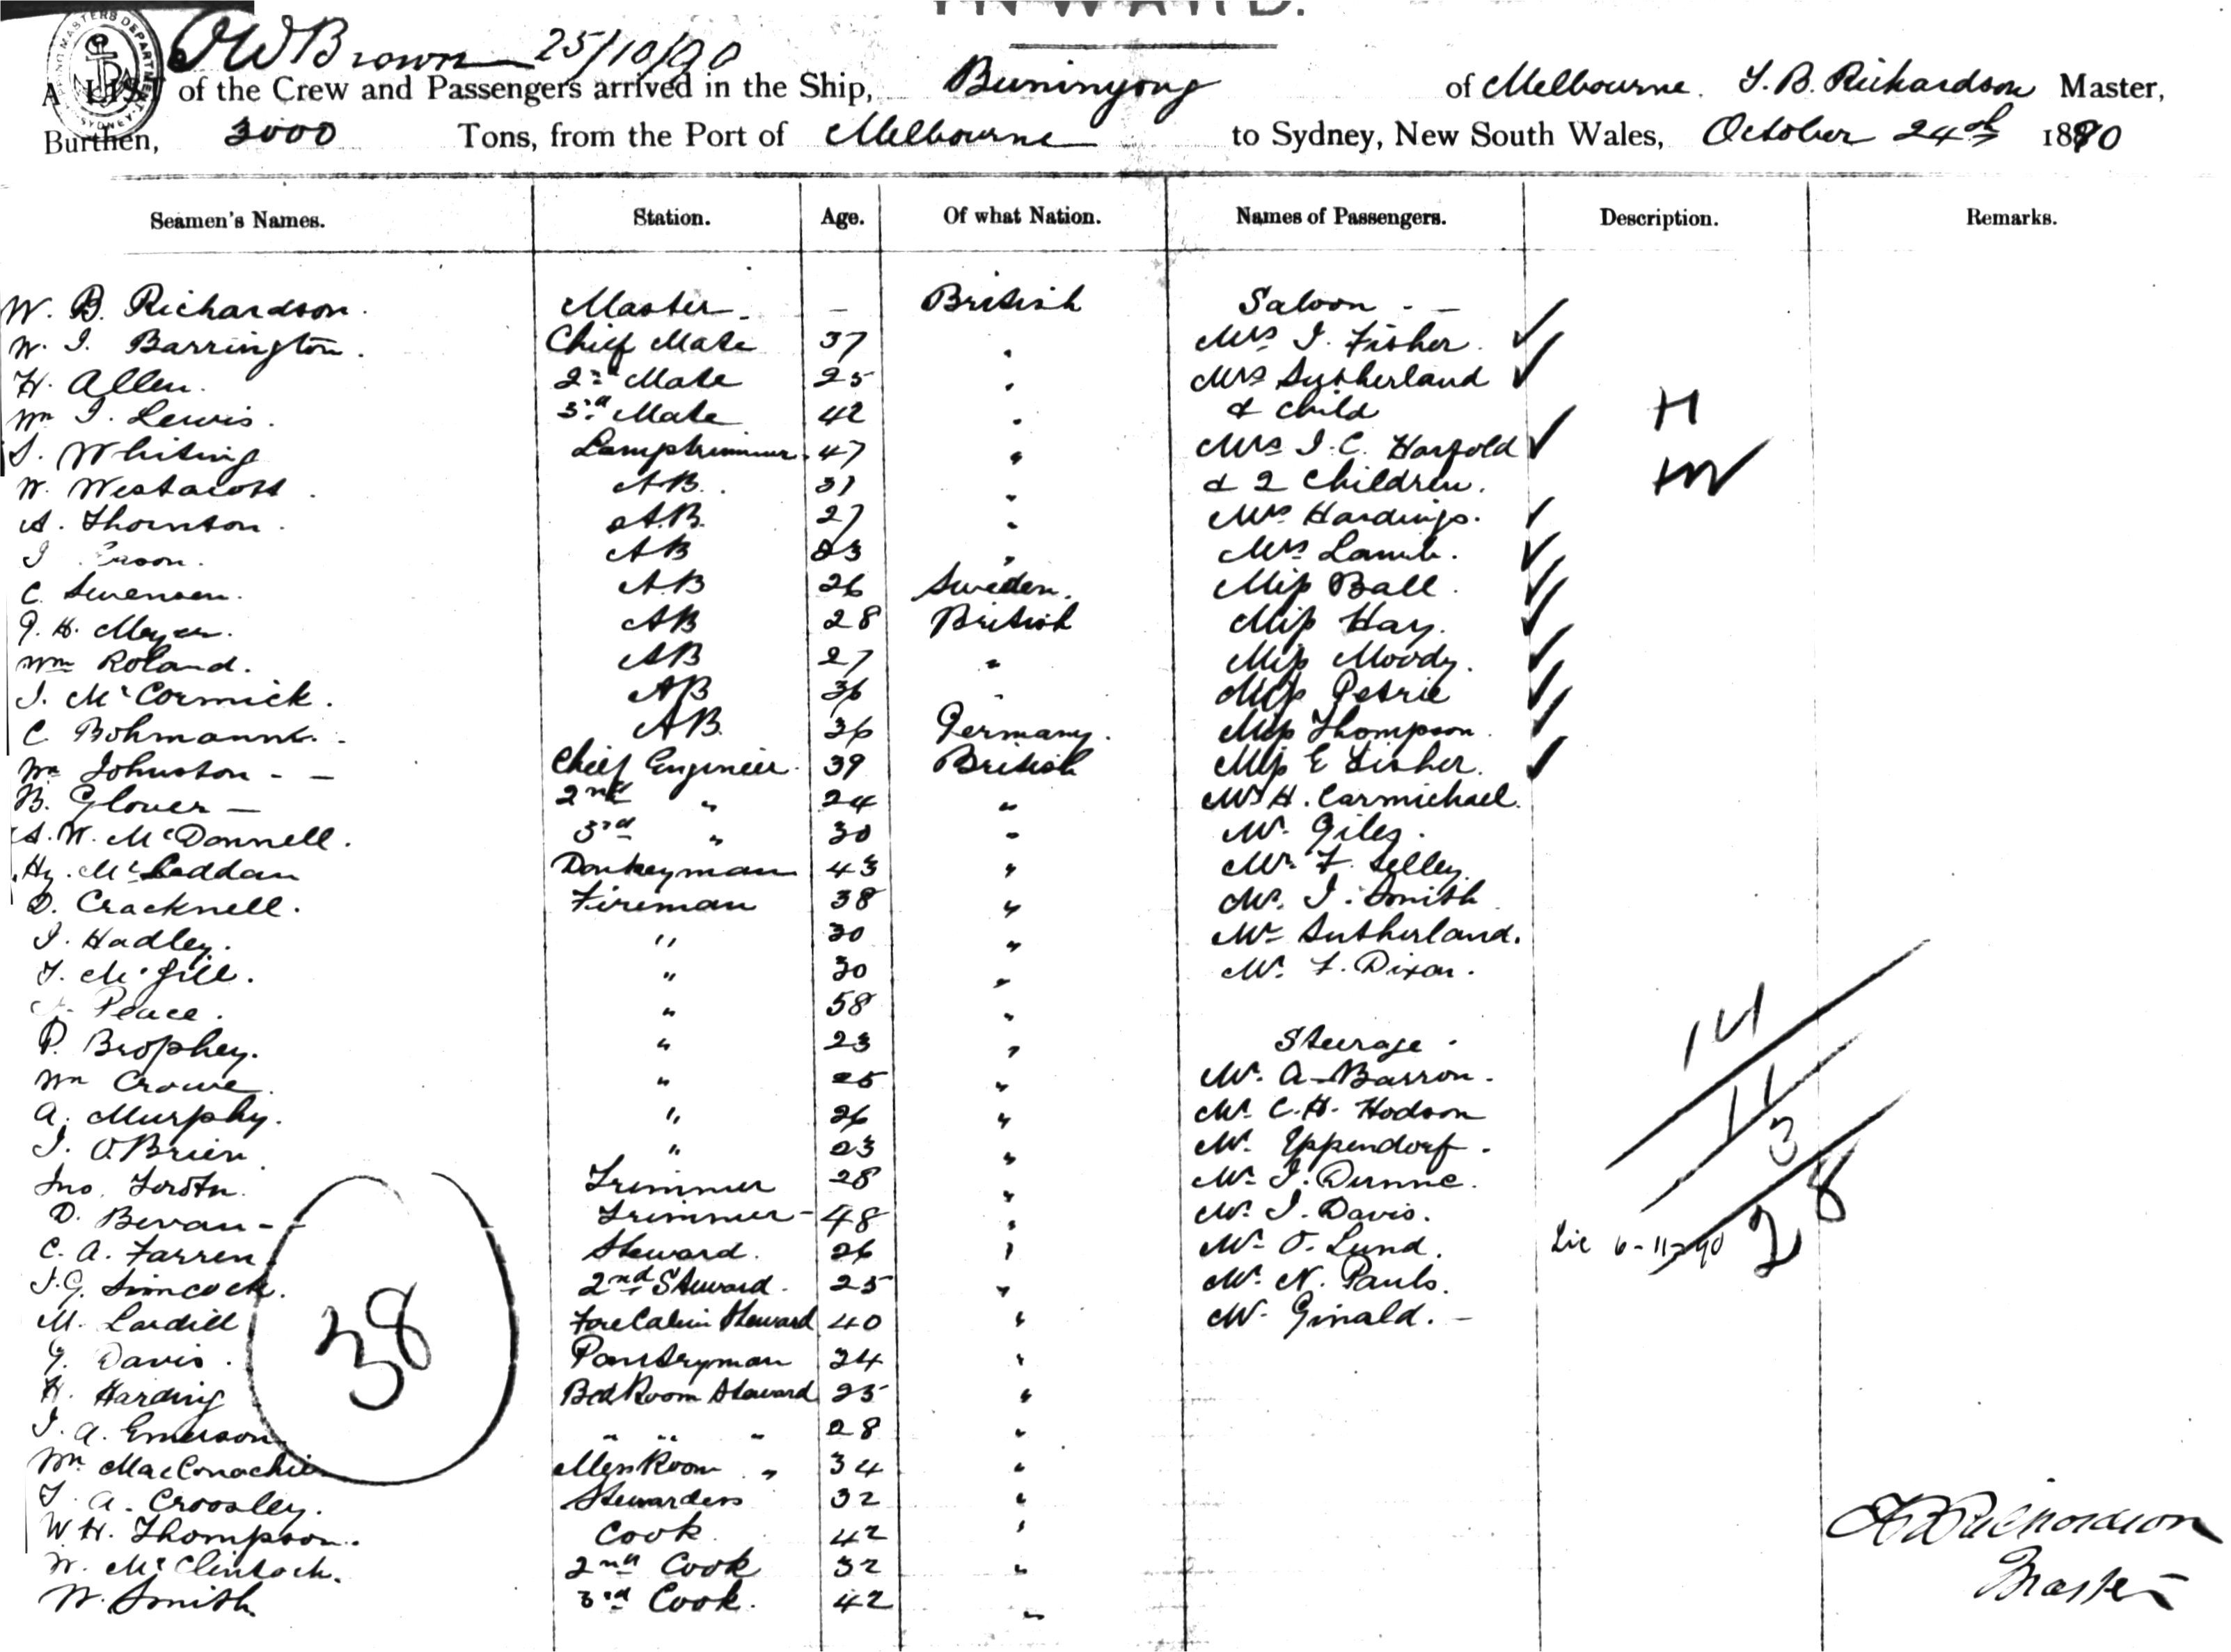 INWARD.
O W Brown 25/10/90
A LIST of the Crew and Passengers arrived in the Ship, Buninyong of Melbourne. T. B. Richardson Master,
Burthen, 3000 Tons, from the Port of Melbourne to Sydney, New South Wales, October 24th 1890
Seamen's Names. Station. Age. Of what Nation. Names of Passengers. Description. Remarks.
W. B. Richardson. Master. – British Saloon - –
W. I. Barrington. Chief Mate 37 " Mrs I. Fisher. ✓
H. Allen. 2nd Mate 25 " Mrs Sutherland ✓
Wm I. Lewis. 3rd Mate 42 " & Child H
S. Whiting Lamptrimmer. 47 " Mrs I. C. Harfold ✓
W. Westacott. A.B. 31 " & 2 Children.
A. Thornton. A.B. 27 " Mrs Hardings. ✓
I AB 23 " Mrs Lamb. ✓
C. Swensen. A.B 26 Sweden. Miss Ball. ✓
G. H. Meyer. AB 28 British Miss Hay. ✓
Wm Roland. AB 27 " Miss Moody. ✓
I. McCormick. AB 36 " Miss Petrie ✓
C. Bohmann. AB. 36 Germany. Miss Thompson. ✓
Wm Johnston - – Chief Engineer. 39 British Miss E Fisher. ✓
B. Glover – 2nd " 24 " Mr H. Carmichael.
A. W. McDonnell. 3rd " 30 " Mr. Giles.
Hy. McLeddan Donkeyman 43 " Mr. F. Selley.
D. Cracknell. Fireman 38 " Mr. I. Smith
I. Hadley. " 30 " Mr Sutherland.
T. McGill. " 30 " Mr. F. Dixon.
Peace. " 58 "
P. Brophey. " 23 " Steerage.
Wm Crowe. " 25 " Mr. A. Barron.
A. Murphy. " 26 " Mr. C. H. Hodson
I. O'Brien. " 23 " Mr. Eppendorf.
Jno. Trimmer 28 " Mr. I. Dunne.
D. Bevan - Trimmer - 48 " Mr. I. Davis.
C. A. Farren Steward. 26 " Mr O. Lund.
J. G. Simcock. 2nd Steward. 25 " Mr. N. Pauls.
M. Lardill Fore Cabin Steward 40 " Mr. Ginald. –
G. Davis. Pantryman 24 "
H. Harding Bed Room Steward 25 "
I. A. Emerson " " " 28 "
Wm MacConachie Mess Room " 34 "
T. A. Croosley. Stewardess 32 "
W. H. Thompson. Cook. 42 "
W. McClintock. 2nd Cook 32 "
W. Smith. 3rd Cook. 42 "
38
14
11
3
28
6-11-90
T B Richardson
Master